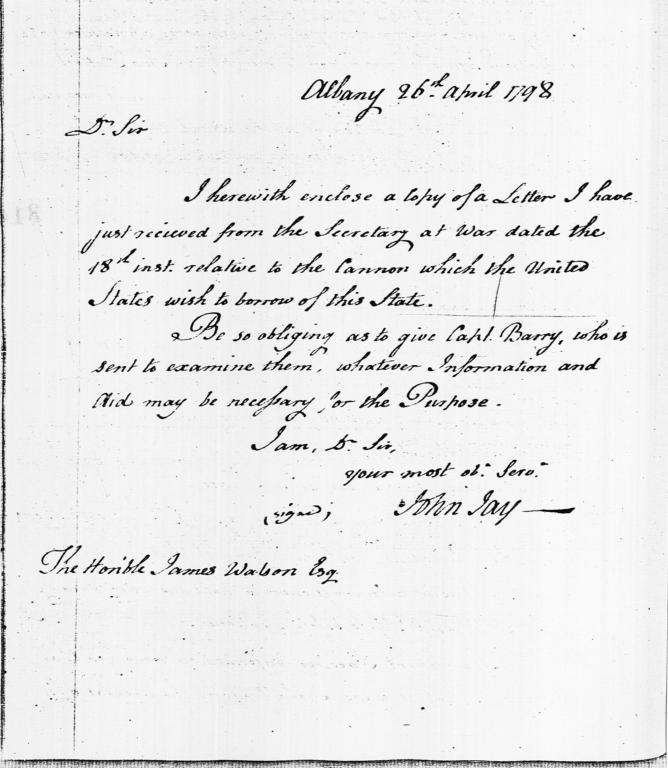 Albany 26th April 1798
Dr Sir
I herewith enclose a Copy of a Letter I have
just recieved from the Secretary at War dated the
18th inst. relative to the Cannon which the United
States wish to borrow of this State.
Be so obliging as to give Capt. Barry, who is
sent to examine them, whatever Information and
Aid may be necessary for the Purpose.
I am, Dr Sir,
your most obt Servt
(signed) John Jay
The Honble James Watson Esq